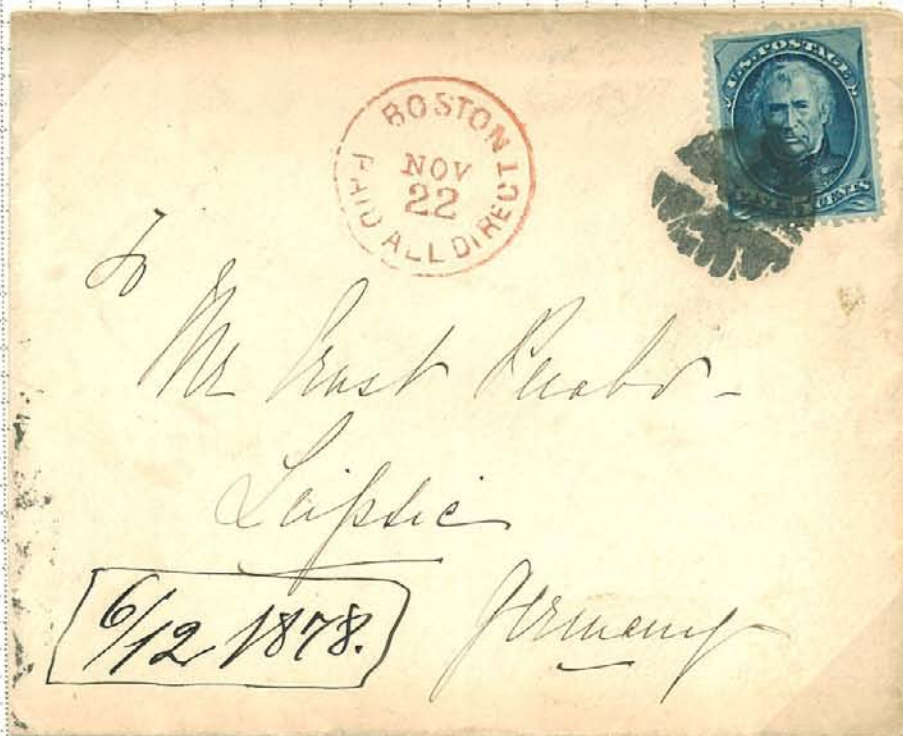 U.S. POSTAGE
CENTS
BOSTON
NOV
22
PAID ALL DIRECT
To
Mr Ernst Perabo -
Leipsic
Germany
6/12 1878.